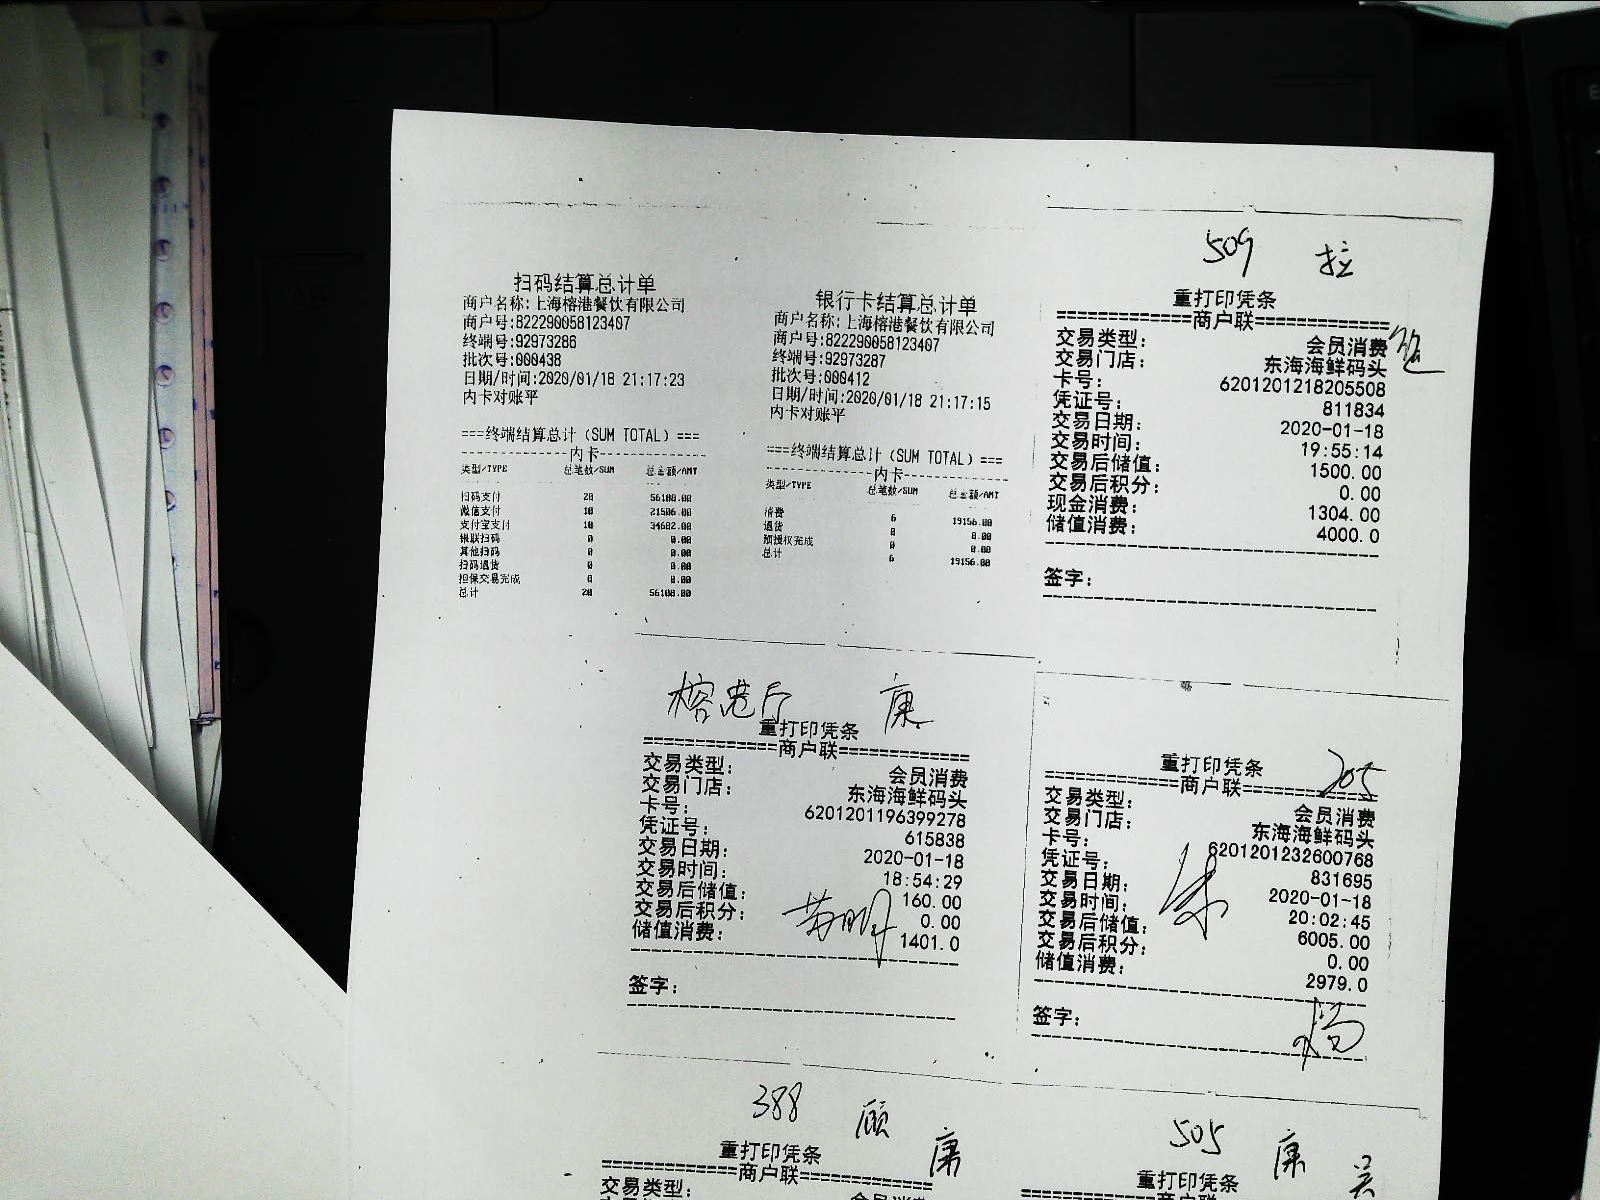 扫码结算总计单
商户名称:上海榕港餐饮有限公司
商户号:822290058123407
终端号:92973286
批次号:000438
日期/时间:2020/01/18 21:17:23
内卡对账平
===终端结算总计（SUM TOTAL）===
内卡
类型/TYPE 总笔数/SUM 总金额/AMT
扫码支付 20 56188.00
微信支付 10 21506.00
支付宝支付 10 34682.00
银联扫码 0 0.00
其他扫码 0 0.00
扫码退货 0 0.00
担保交易完成 0 0.00
总计 20 56188.00
银行卡结算总计单
商户名称:上海榕港餐饮有限公司
商户号:822290058123407
终端号:92973287
批次号:000412
日期/时间:2020/01/18 21:17:15
内卡对账平
===终端结算总计（SUM TOTAL）===
内卡
类型/TYPE 总笔数/SUM 总金额/AMT
消费 6 19156.00
退货 0 0.00
预授权完成 0 0.00
总计 6 19156.00
509
重打印凭条
============商户联============
交易类型: 会员消费
交易门店: 东海海鲜码头
卡号: 6201201218205508
凭证号: 811834
交易日期: 2020-01-18
交易时间: 19:55:14
交易后储值: 1500.00
交易后积分: 0.00
现金消费: 1304.00
储值消费: 4000.0
签字:
榕港厅 康
重打印凭条
============商户联============
交易类型: 会员消费
交易门店: 东海海鲜码头
卡号: 6201201196399278
凭证号: 615838
交易日期: 2020-01-18
交易时间: 18:54:29
交易后储值: 160.00
交易后积分: 0.00
储值消费: 1401.0
签字:
205
重打印凭条
============商户联============
交易类型: 会员消费
交易门店: 东海海鲜码头
卡号: 6201201232600768
凭证号: 831695
交易日期: 2020-01-18
交易时间: 20:02:45
交易后储值: 6005.00
交易后积分: 0.00
储值消费: 2979.0
签字:
388 顾 康
重打印凭条
============商户联============
交易类型: 会员消费
505 康 吴
重打印凭条
商户联